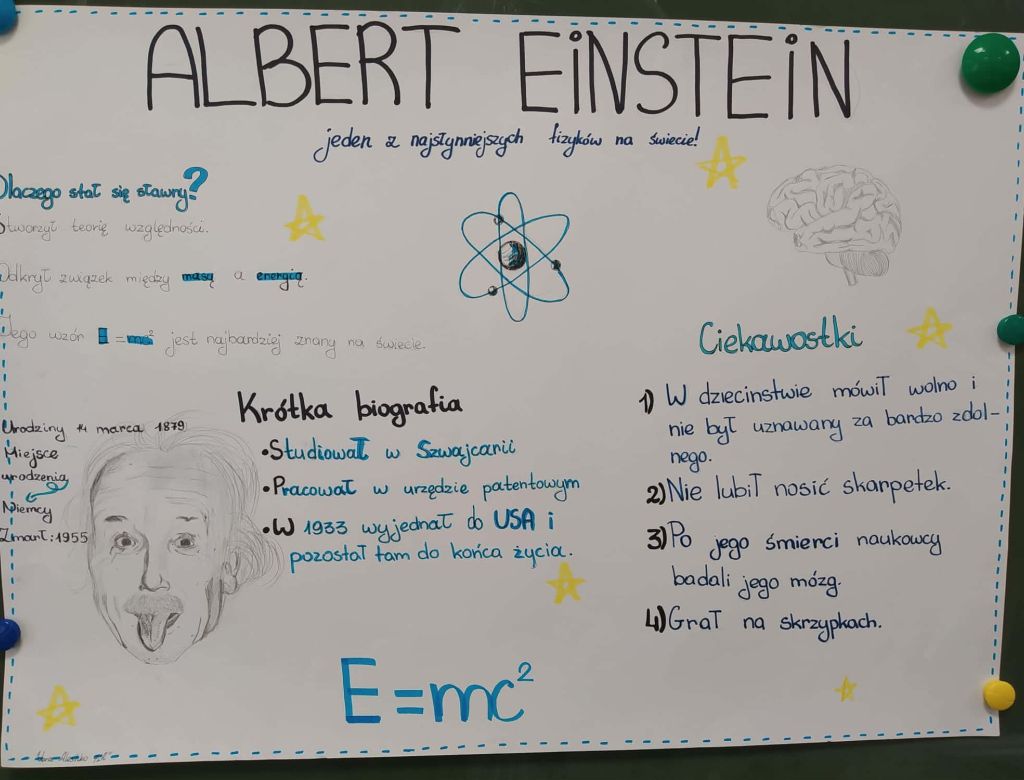 ALBERT EINSTEIN
jeden z najsłynniejszych fizyków na świecie!
Dlaczego stał się sławny?
Stworzył teorię względności.
Odkrył związek między masą a energią.
Jego wzór E=mc² jest najbardziej znany na świecie.
Urodziny 14 marca 1879
Miejsce
urodzenia
Niemcy
Zmarł: 1955
Krótka biografia
•Studiował w Szwajcarii
•Pracował w urzędzie patentowym
•W 1933 wyjechał do USA i
pozostał tam do końca życia.
E=mc²
Ciekawostki
1) W dziecinstwie mówił wolno i
nie był uznawany za bardzo zdol-
nego.
2) Nie lubił nosić skarpetek.
3) Po jego śmierci naukowcy
badali jego mózg.
4) Grał na skrzypkach.